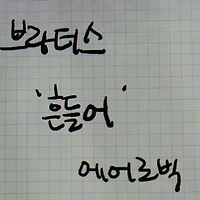 브랑더스
'흔들어'
에어로빅